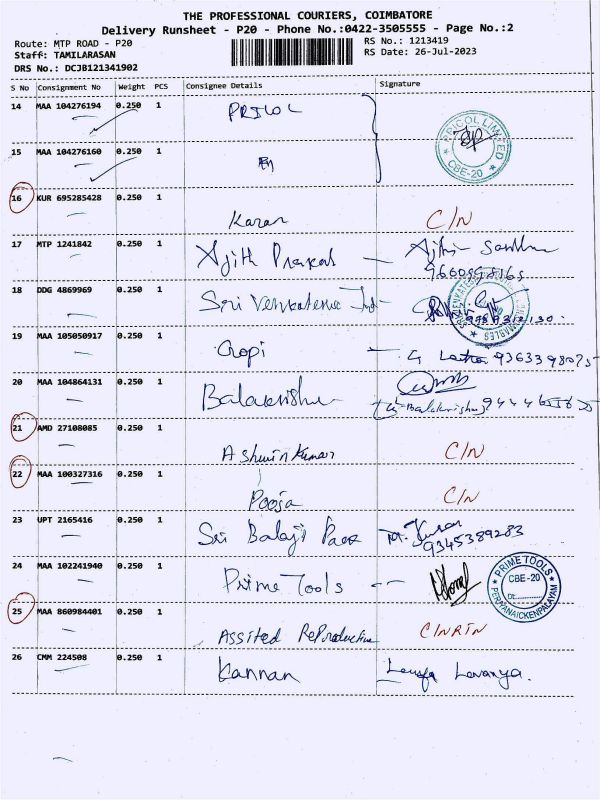 THE PROFESSIONAL COURIERS, COIMBATORE
Delivery Runsheet - P20 - Phone No.:0422-3505555 - Page No.:2
Route: MTP ROAD - P20
RS No.: 1213419
Staff: TAMILARASAN
RS Date: 26-Jul-2023
DRS No.: DCJB121341902
S No Consignment No Weight PCS Consignee Details Signature
14 MAA 104276194 0.250 1 PRICOL
PRICOL LIMITED CBE-20
15 MAA 104276160 0.250 1
16 KUR 695285428 0.250 1
Karan C/N
17 MTP 1241842 0.250 1
Ajith Prakash
18 DDG 4869969 0.250 1
Sri Venkateswa
19 MAA 105050917 0.250 1
Gopi
20 MAA 104864131 0.250 1
Balakrishna
21 AMD 27108085 0.250 1
Ashwin Kumar C/N
22 MAA 100327316 0.250 1
Pooja C/N
23 UPT 2165416 0.250 1
Sri Balaji
9345389283
24 MAA 102241940 0.250 1
Prime Tools
PRIME TOOLS CBE-20 Dt: PERIYANAICKENPALAYAM
25 MAA 860984401 0.250 1
Assited Reproductive
26 CMM 224508 0.250 1
Kannan Lavanya.